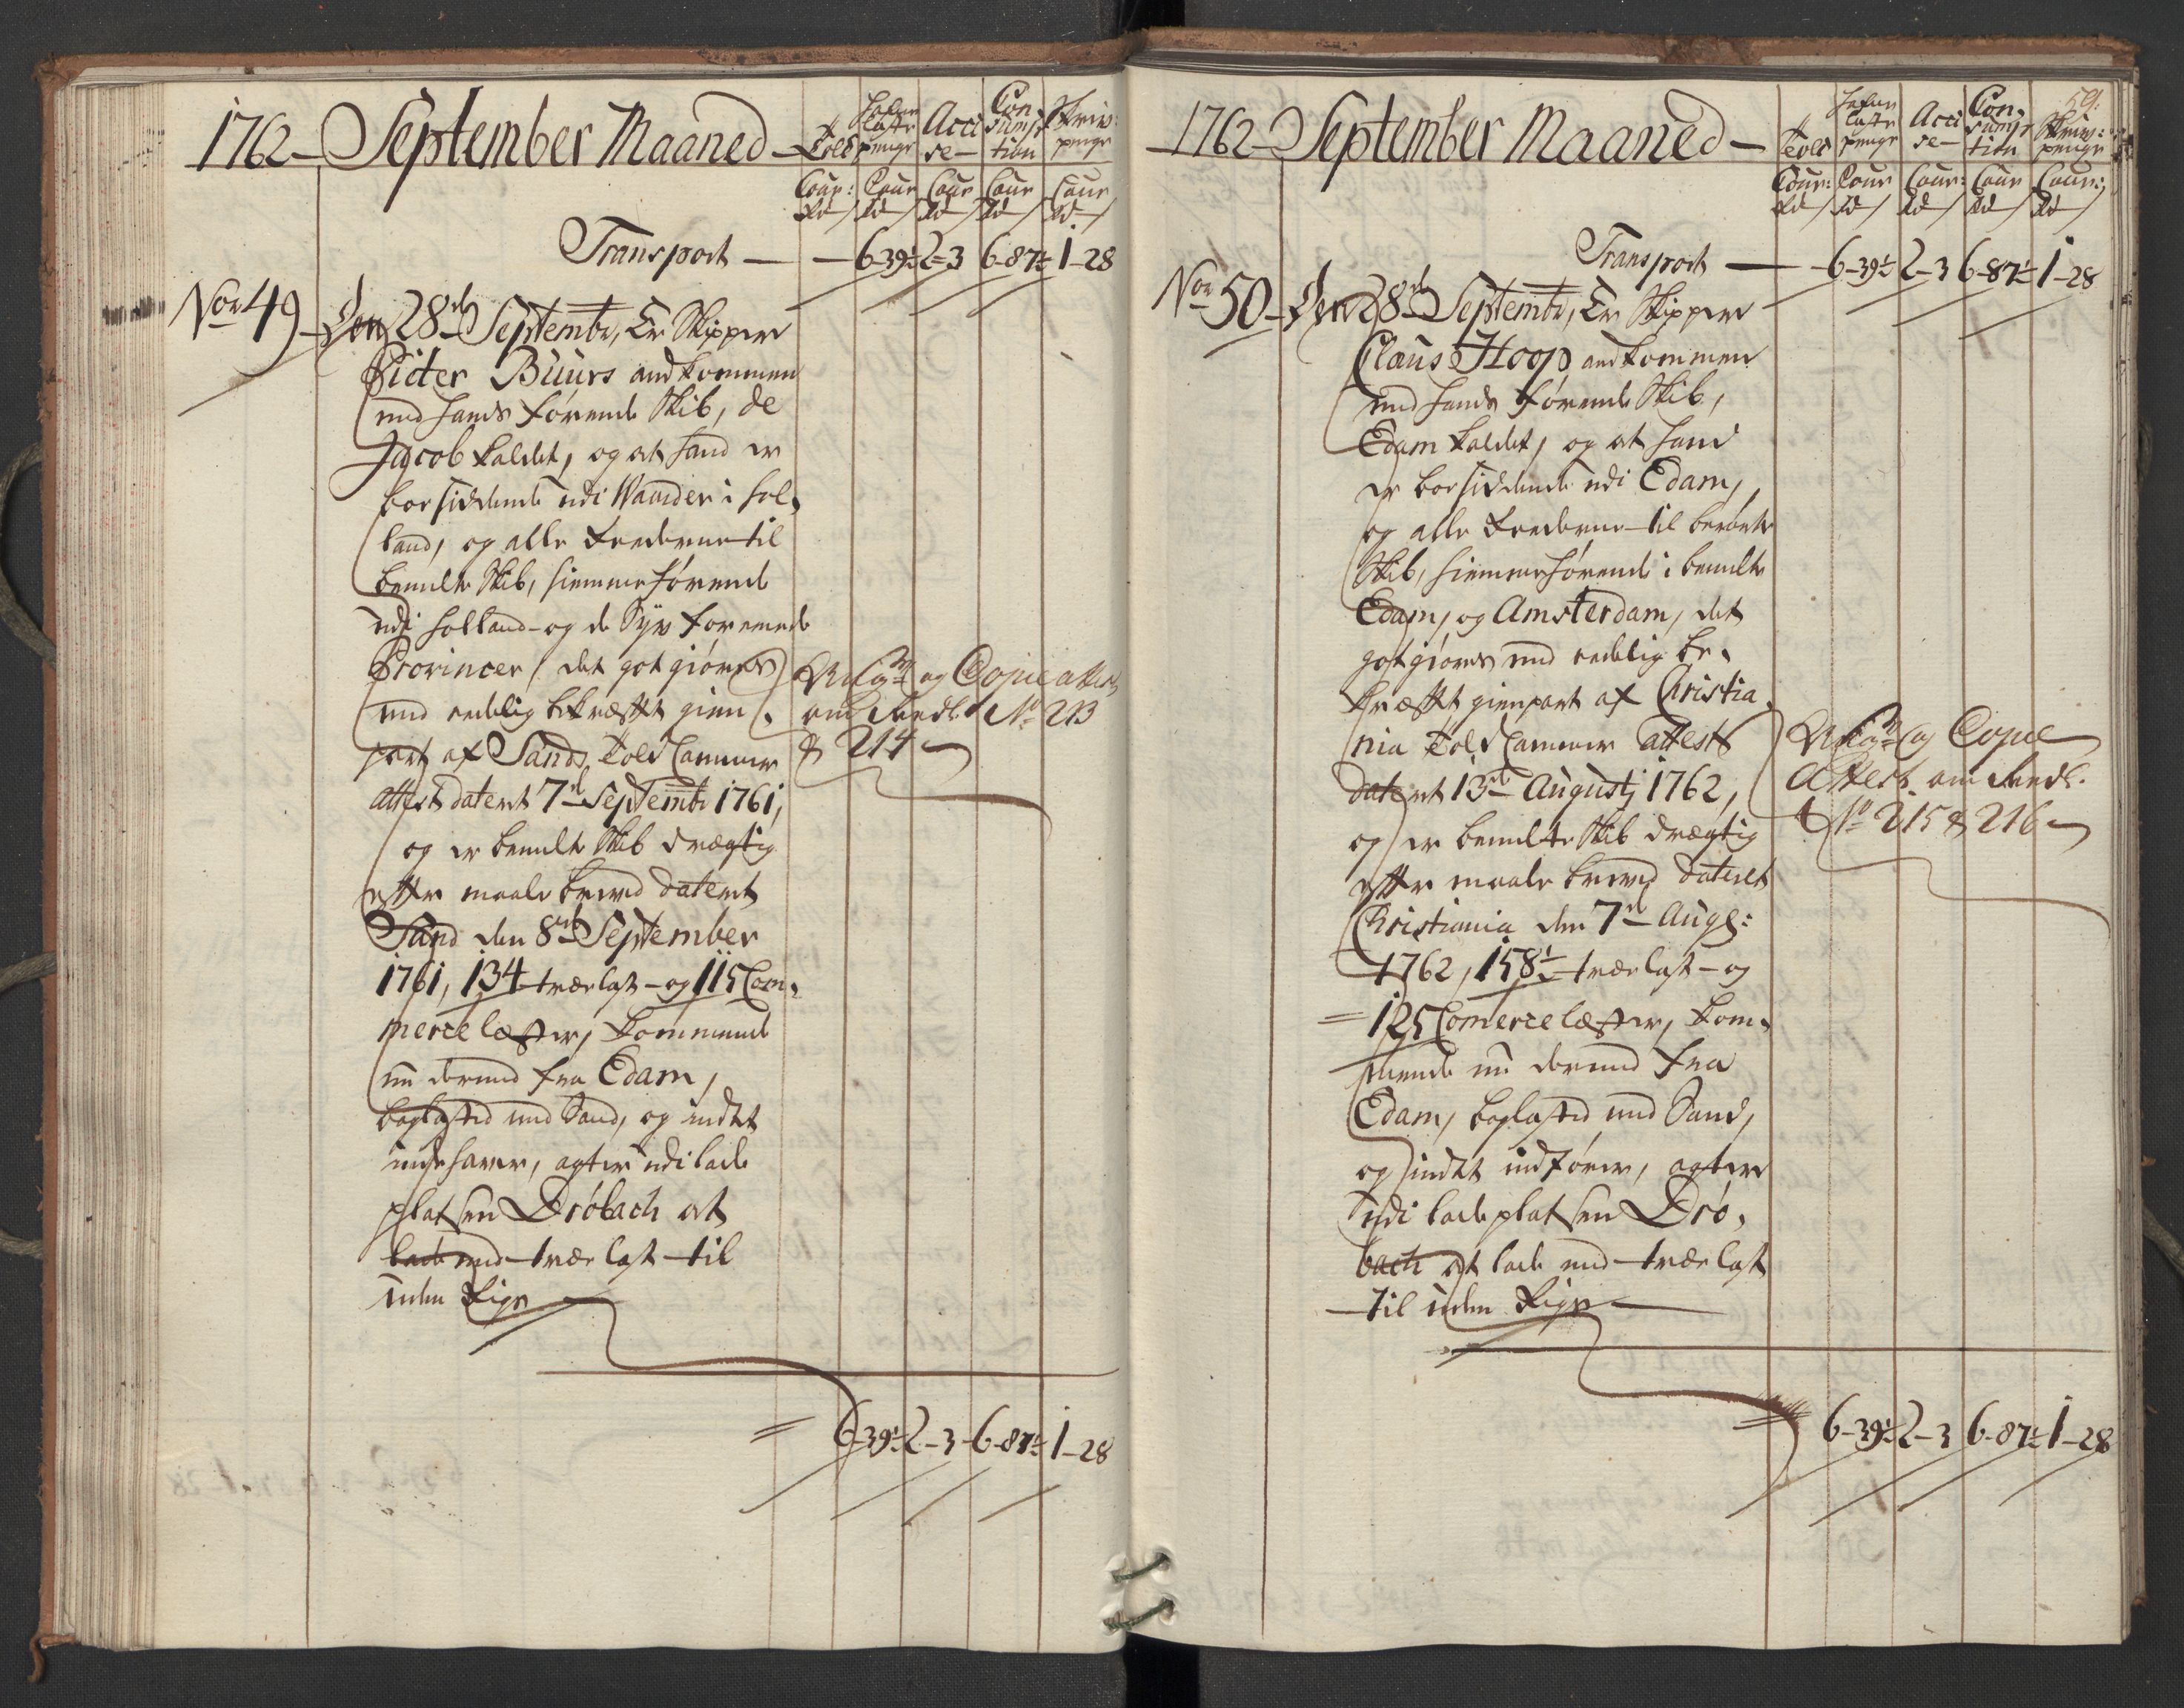 1762 – September Maaned –
Told
Hafne
Laste
penge
Acci
se –
Con
sump
tion
Skriv:
penge
Cour: Cour Cour Cour Cour
Rd / Rd / Rd / Rd / Rd /
Transport — — 6-39½ 2-3 6-87½ 1-28
No 49 – Den 28de Septembr, Er Skipper
Pieter Buurs andkommen
med hands førende Skib, de
Jacob kaldet, og at hand er
boesiddende udi Wander i Hol-
land, og alle Reederne til
bemelte Skib, hiemmehørende
udi Holland og de Syv foreenede
Provincer / det godtgiøres
med reedelig bekræftet gien-
part af Sands Told Cammer
Attest dateret 7de Septembr 1761,
og er bemelte Skib drægtig
efter maale breved dateret
Sand den 8de September
1761, 134 trælast – og 115 Com-
merce læster, kommende
nu dermed fra Edam,
baglasted med Sand, og indtet
indehaver, agter udi lade
platsen Drøbach at
lade med trælast – til
uden Riigs
og Copie attest
om Reedl. No 213
& 214
6-39½ 2-3 6-87½ 1-28
59.
1762 – September Maaned –
Told
Hafne
Laste
penge
Acci
se –
Con-
sump
tion
Skriv:
penge
Cour: Cour Cour: Cour Cour:
Rd / Rd / Rd / Rd / Rd /
Transport — — 6-39½ 2-3 6-87½ 1-28
No 50 – Den 28de Septembr, Er Skipper
Claus Hoop andkommen
med hands førende Skib,
Edam kaldet, og at hand
er boesiddende udi Edam,
og alle Reederne til berørte
Skib, hiemmehørende i bemelte
Edam, og Amsterdam, det
godtgiøres med reedelig be-
kræftet gienpart af Christia
nia Told Cammer Attest
dateret 13de Augustj 1762,
og er bemelte Skib drægtig
efter maale breved dateret
Christiania den 7de Augs:
1762, 158½ trælast – og
125 Comerce læster, kom-
mende nu dermed fra
Edam, baglasted med Sand,
og indtet indfører, agter
udi lade platsen Drø-
bach at lade med trælast
til uden Riigs
og Copie
Attest om Reedl.
No 215 & 216
6-39½ 2-3 6-87½ 1-28